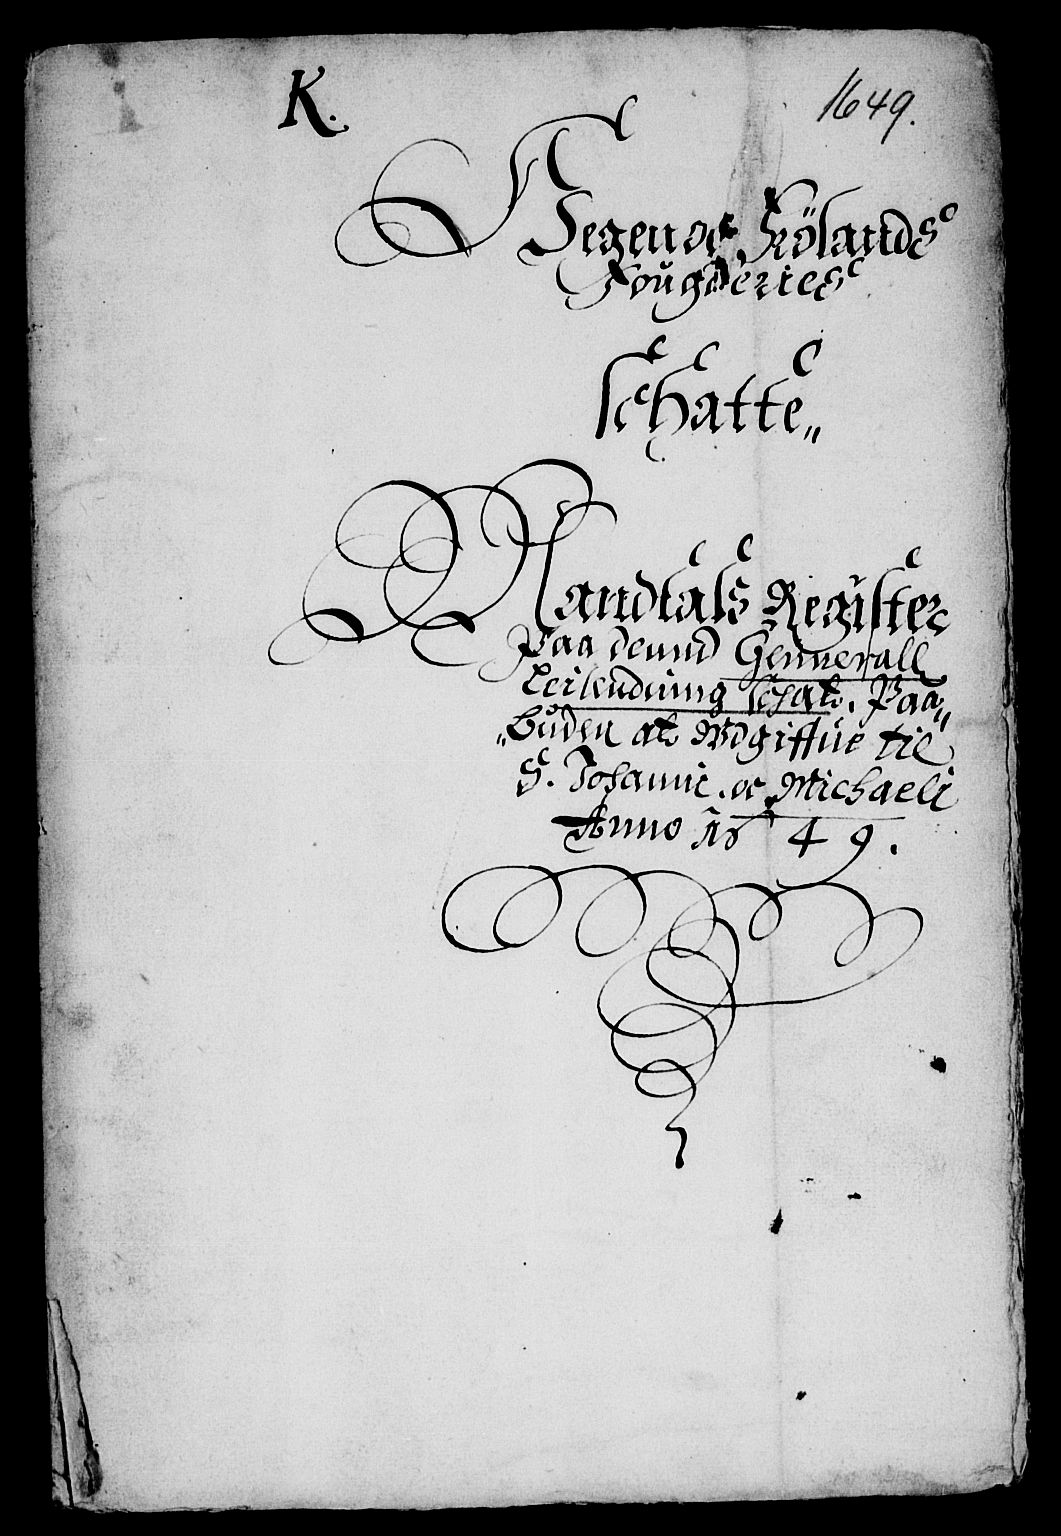 K.
1649.
Segen oc Frölands
Fougderies
Schatte„
Mandtals Register
Paa denndd Gennerall
Leilendning schat. Paa„
„buden at Vdgiffue til
S. Johanni. oc Michaeli
Anno 1649.